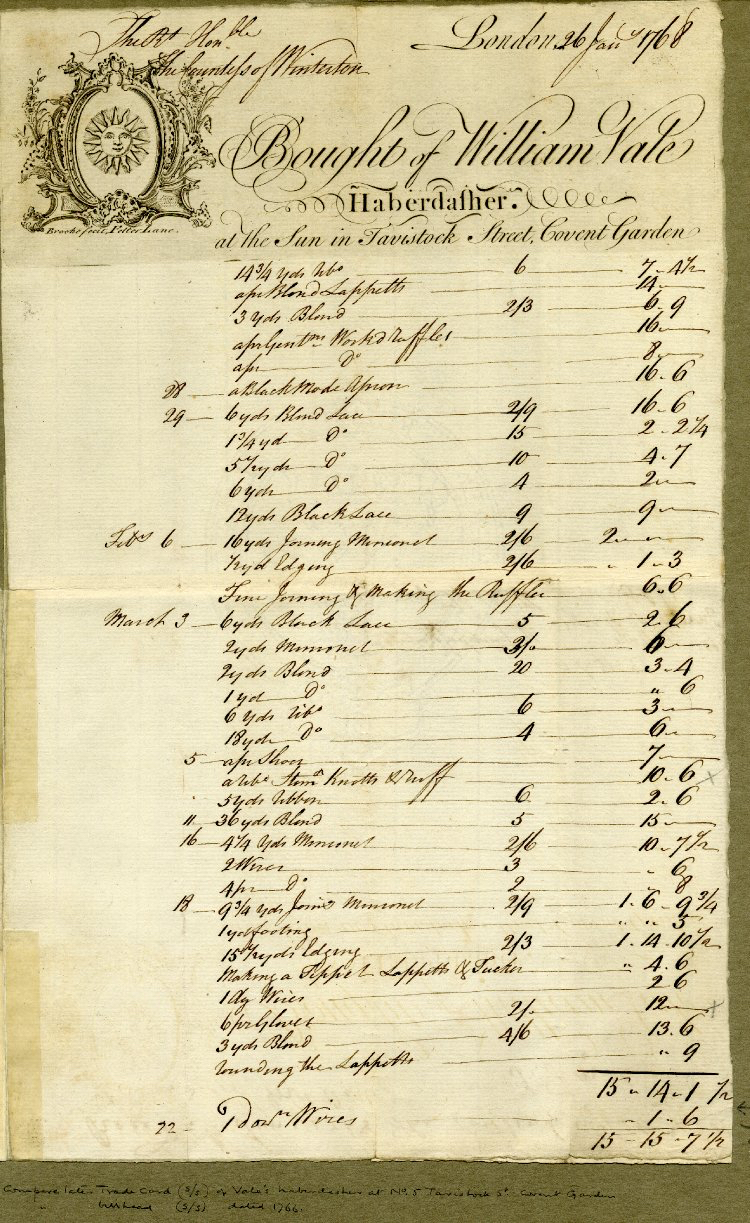 The Rt. Honble
The Countess of Winterton
London 26 Jany 1768
Bought of William Vale
Haberdasher.
at the Sun in Tavistock Street, Covent Garden
Brooke fecit, Fetter Lane.
14 3/4 yds Ribn 6 7 - 4 1/2
a pr Blond Lappetts 14 -
3 yds Blond 2/3 6 - 9
a pr Gentns Workd Ruffles 16 -
a pr Do 8 -
28 a Black Mode Apron 16 - 6
29 6 yds Blond Lace 2/9 16 - 6
1 3/4 yd Do 15 2 - 2 1/4
5 1/2 yds Do 10 4 - 7
6 yds Do 4 2 -
12 yds Black Lace 9 9 -
Febry 6 16 yds Joining Minconet 2/6 2 - -
1/2 yd Edging 2/6 " 1 - 3
Fine Joining & Making the Ruffles 6 - 6
March 3 6 yds Black Lace 5 2 - 6
2 yds Minionet 3/- 6 -
2 yds Blond 20 3 - 4
1 yd Do " 6
6 yds Ribn 6 3 -
18 yds Do 4 6 -
5 a pr Shoes 7 -
a Ribn Stomr Knotts & Ruff 10 - 6 x
5 yds Ribbon 6 2 - 6
11 36 yds Blond 5 15 -
16 4 1/4 yds Minionet 2/6 10 - 7 1/2
2 Wires 3 " 6
4 pr Do 2 " 8
18 9 3/4 yds Joind Minionet 2/9 1 - 6 - 9 3/4
1 yd footing " " 5
15 1/2 yds Edging 2/3 1 - 14 - 10 1/2
Making a Tippet Lappetts & Tucker " 4 - 6
1 Dz Wires 2 6
6 pr Gloves 2/- 12 - x
3 yds Blond 4/6 13 - 6
rounding the Lappetts " 9
15 - 14 - 1 1/2
22 1 Dozn Wires - 1 - 6
15 - 15 - 7 1/2
Compare later Trade Card (3/5) of Vale's haberdasher at No. 5 Tavistock St. Covent Garden
" billhead (3/5) dated 1766.